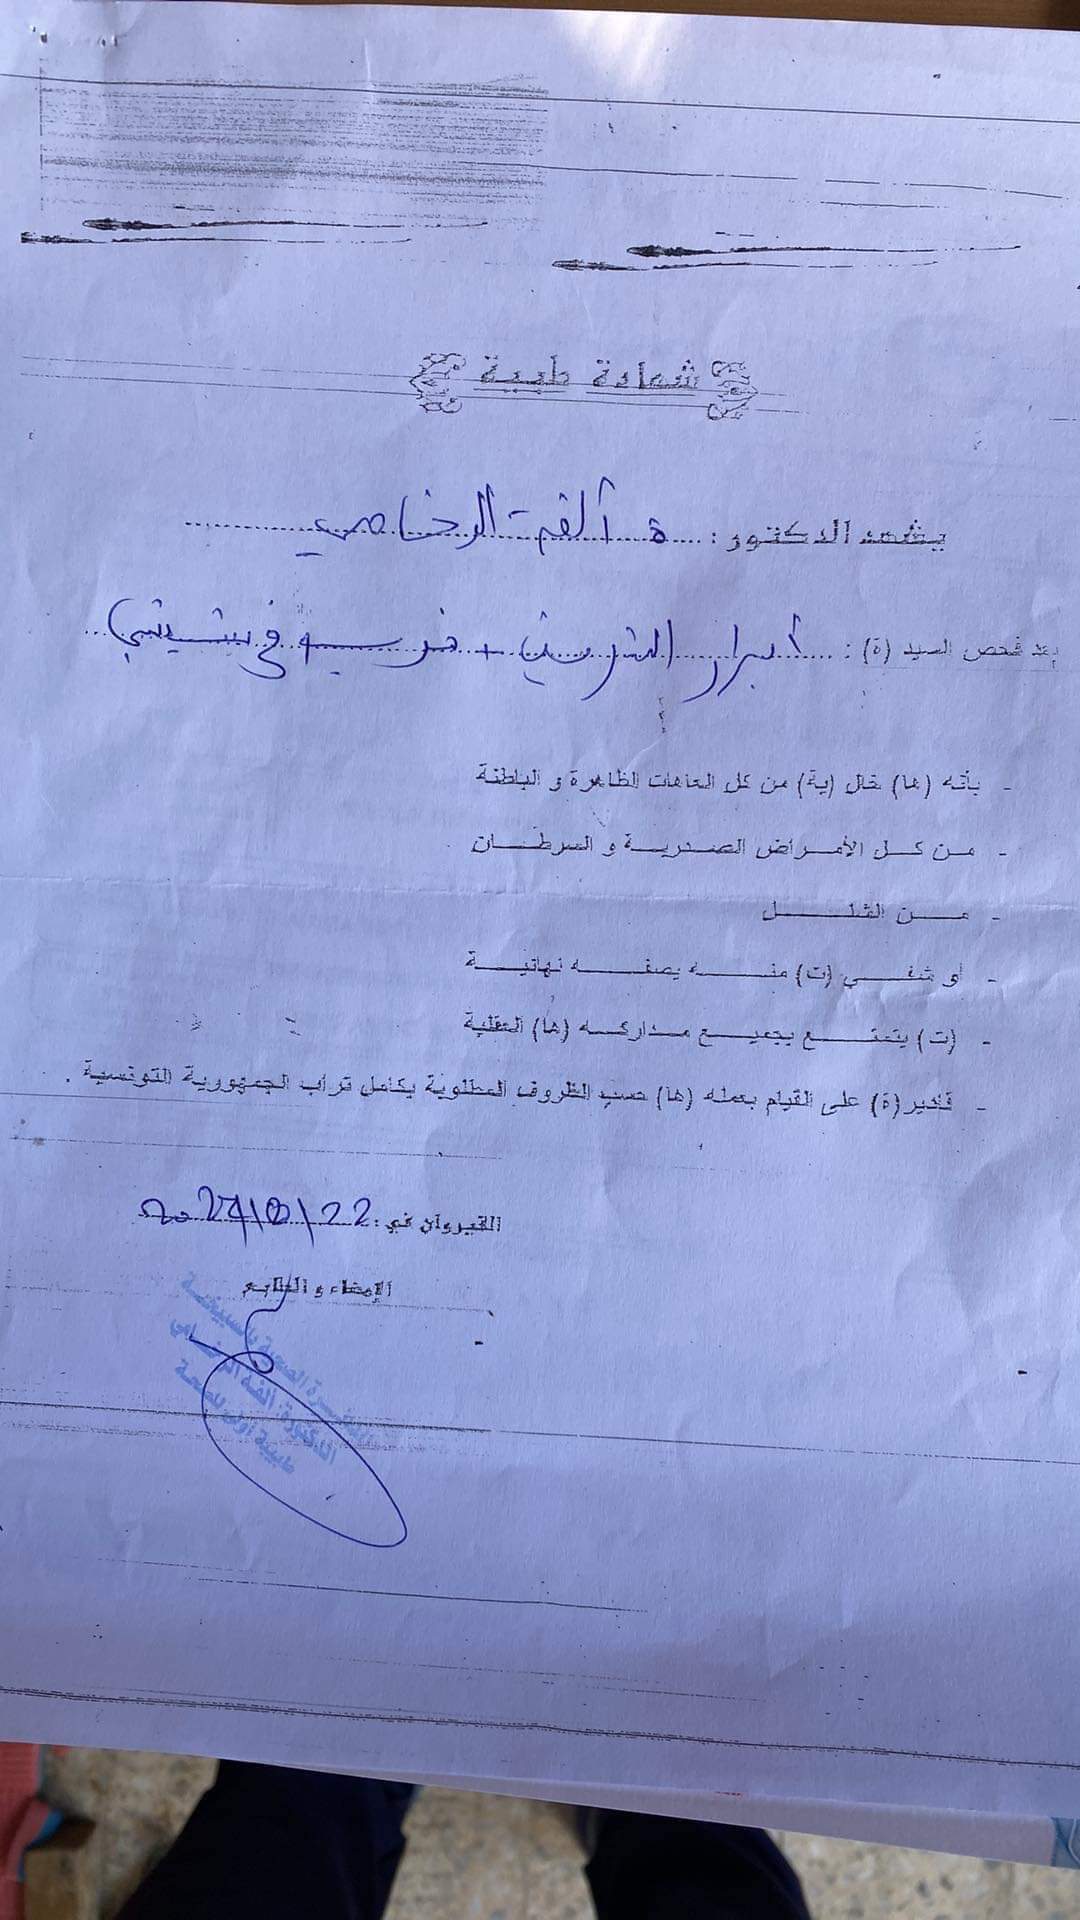 شهادة طبية
يشهد الدكتور : ة ألفت الرخامي
بعد فحص السيد (ة) : أبرار
- بأنه (ها) خال (ية) من كل العاهات الظاهرة و الباطنة
- من كل الأمراض الصدرية و السرطان
- من الشلل
- أو شفي (ت) منه بصفة نهائية
- (ت) يتمتع بجميع مداركه (ها) العقلية
- قادير (ة) على القيام بعمله (ها) حسب الظروف المطلوبة بكامل تراب الجمهورية التونسية .
القيروان في :
الإمضاء و الطابع
الدكتورة: ألفة الرخامي
طبيبة أولى للصحة